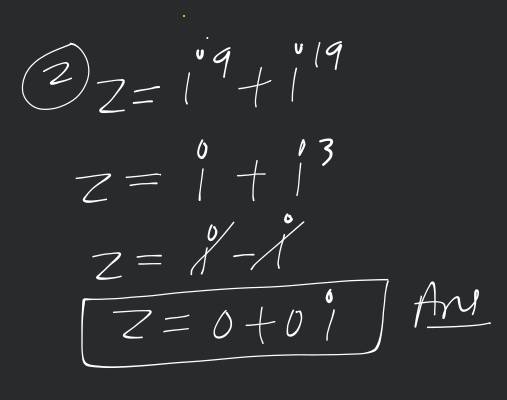 ② z = i⁹ + i¹⁹
z = i + i³
z = i - i
z = 0 + 0i Ans